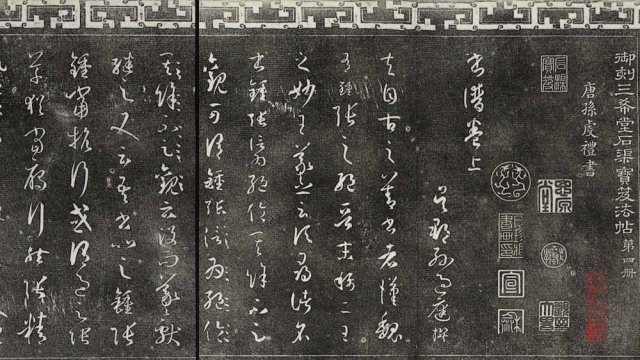 御刻三希堂石渠寶笈法帖 第四冊
唐孫虔禮書
書譜卷上
吳郡孫過庭撰
夫自古之善書者漢魏
有鍾張之絕晉末稱二王
之妙王羲之云頃尋諸名
書鍾張信為絕倫其餘不足
觀可謂鍾張信為絕倫
其餘不足觀云沒而羲獻
繼之又云吾書比之鍾張
鍾當抗行或謂過之張
草猶當雁行然張精